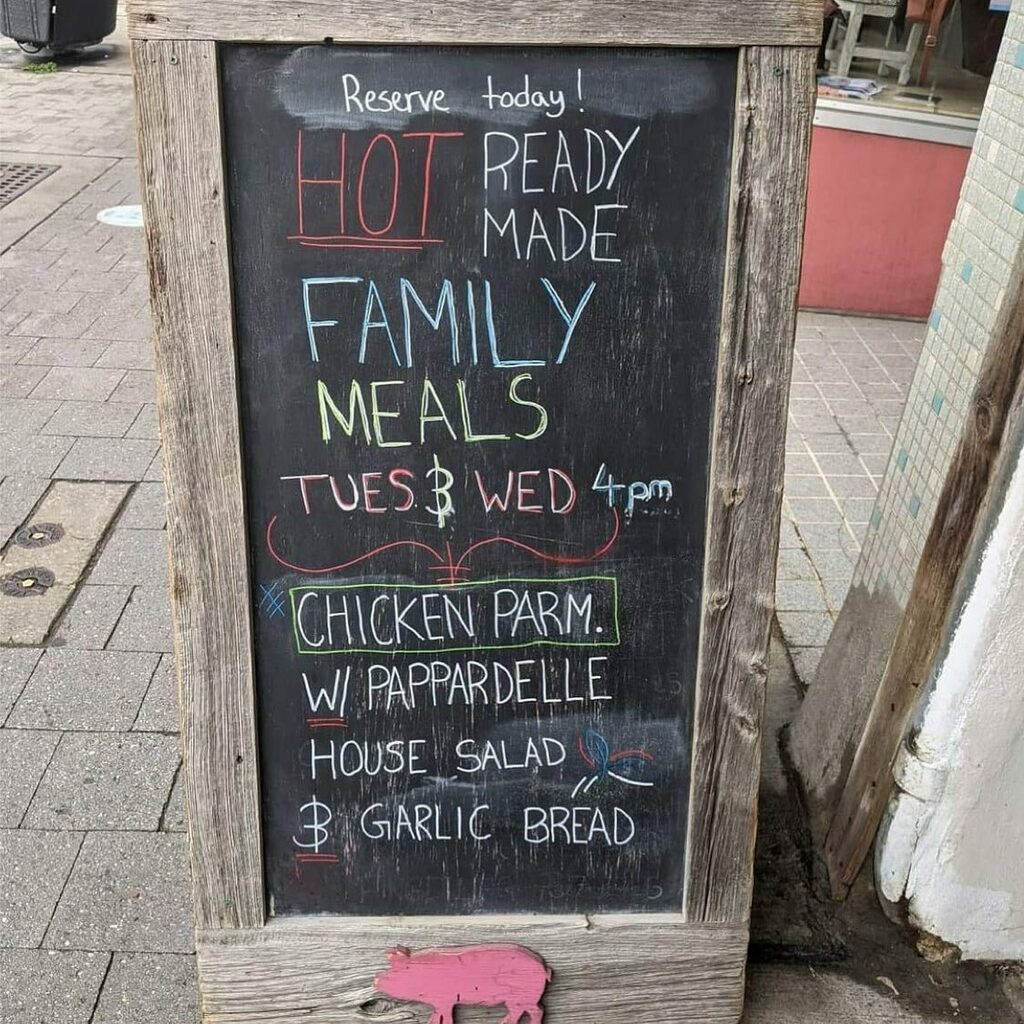 Reserve today!
HOT READY
MADE
FAMILY
MEALS
TUES & WED 4pm
CHICKEN PARM.
W/ PAPPARDELLE
HOUSE SALAD
& GARLIC BREAD